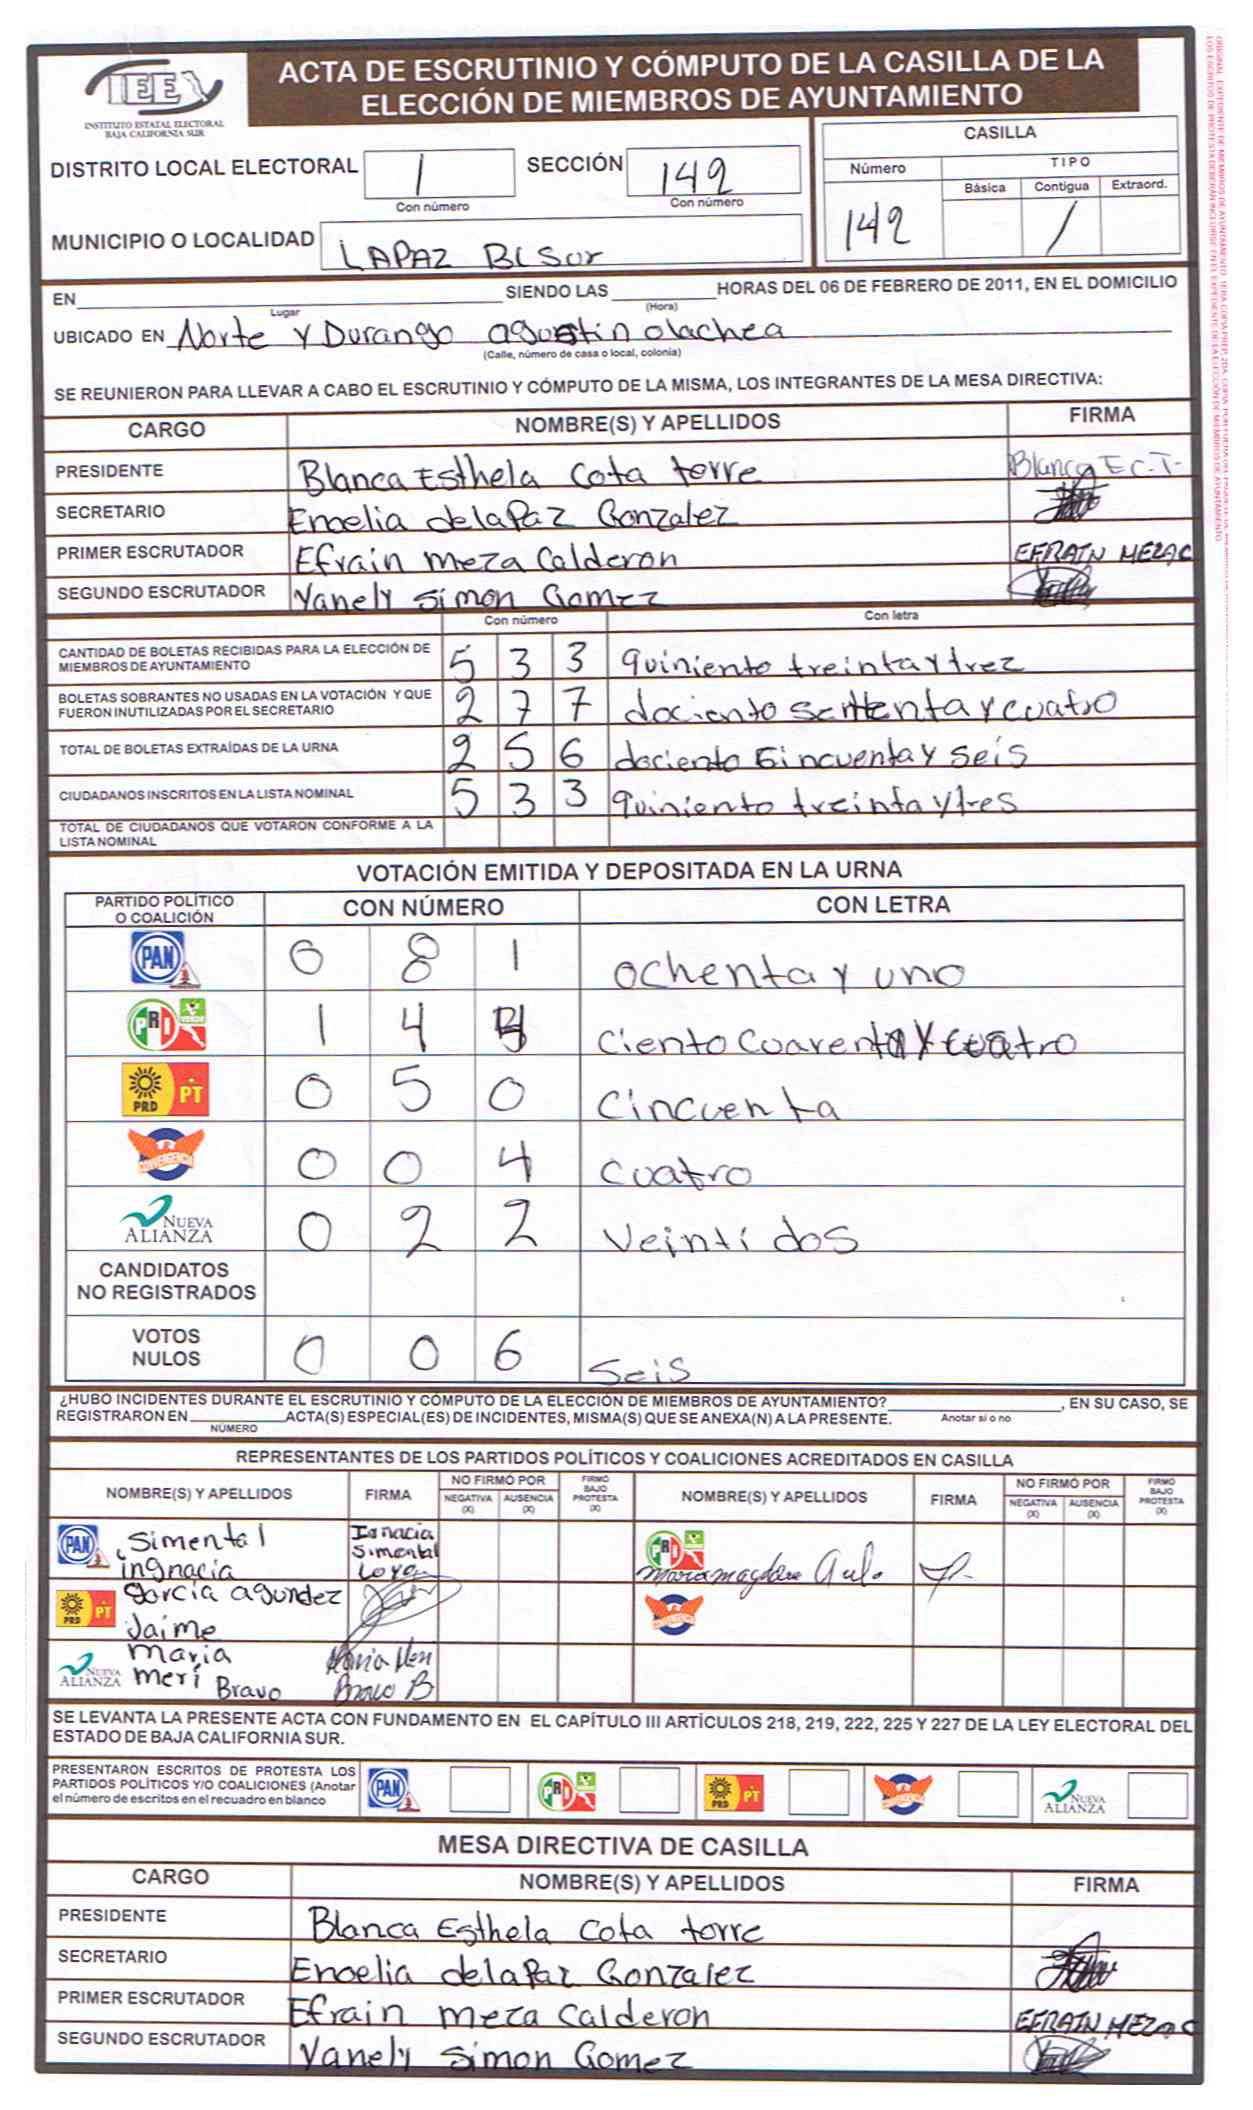 ACTA DE ESCRUTINIO Y CÓMPUTO DE LA CASILLA DE LA
ELECCIÓN DE MIEMBROS DE AYUNTAMIENTO
INSTITUTO ESTATAL ELECTORAL
BAJA CALIFORNIA SUR
DISTRITO LOCAL ELECTORAL 1 SECCIÓN 149
Con número Con número
CASILLA
Número TIPO
Básica Contigua Extraord.
149 /
MUNICIPIO O LOCALIDAD LAPAZ BCSur
EN SIENDO LAS HORAS DEL 06 DE FEBRERO DE 2011, EN EL DOMICILIO
Lugar (Hora)
UBICADO EN Norte Y Durango agustin olachea
(Calle, número de casa o local, colonia)
SE REUNIERON PARA LLEVAR A CABO EL ESCRUTINIO Y CÓMPUTO DE LA MISMA, LOS INTEGRANTES DE LA MESA DIRECTIVA:
CARGO NOMBRE(S) Y APELLIDOS FIRMA
PRESIDENTE Blanca Esthela Cota torre Blanca E C.T.
SECRETARIO Enoelia delaPaz Gonzalez
PRIMER ESCRUTADOR Efrain meza Calderon EFRAIN MEZA C
SEGUNDO ESCRUTADOR Yanely Simon Gomez
Con número Con letra
CANTIDAD DE BOLETAS RECIBIDAS PARA LA ELECCIÓN DE
MIEMBROS DE AYUNTAMIENTO 5 3 3 quiniento treinta y trez
BOLETAS SOBRANTES NO USADAS EN LA VOTACIÓN Y QUE
FUERON INUTILIZADAS POR EL SECRETARIO 2 7 7 dociento setenta y cuatro
TOTAL DE BOLETAS EXTRAÍDAS DE LA URNA 2 5 6 dociento Cincuenta y seis
CIUDADANOS INSCRITOS EN LA LISTA NOMINAL 5 3 3 quiniento treinta y tres
TOTAL DE CIUDADANOS QUE VOTARON CONFORME A LA
LISTA NOMINAL
VOTACIÓN EMITIDA Y DEPOSITADA EN LA URNA
PARTIDO POLÍTICO
O COALICIÓN CON NÚMERO CON LETRA
PAN 0 8 1 ochenta y uno
PRI VERDE 1 4 4 Ciento Cuarenta y cuatro
PRD PT 0 5 0 Cincuenta
CONVERGENCIA 0 0 4 Cuatro
NUEVA
ALIANZA 0 2 2 Veinti dos
CANDIDATOS
NO REGISTRADOS
VOTOS
NULOS 0 0 6 Seis
¿HUBO INCIDENTES DURANTE EL ESCRUTINIO Y CÓMPUTO DE LA ELECCIÓN DE MIEMBROS DE AYUNTAMIENTO? , EN SU CASO, SE
REGISTRARON EN ACTA(S) ESPECIAL(ES) DE INCIDENTES, MISMA(S) QUE SE ANEXA(N) A LA PRESENTE. Anotar sí o no
NÚMERO
REPRESENTANTES DE LOS PARTIDOS POLÍTICOS Y COALICIONES ACREDITADOS EN CASILLA
NOMBRE(S) Y APELLIDOS FIRMA NO FIRMÓ POR NEGATIVA (X) AUSENCIA (X) FIRMÓ BAJO PROTESTA (X) NOMBRE(S) Y APELLIDOS FIRMA NO FIRMÓ POR NEGATIVA (X) AUSENCIA (X) FIRMÓ BAJO PROTESTA (X)
PAN Simental Ignacia PRI
ingnacia Simental
PRD PT garcia agundez CONVERGENCIA
Jaime
maria
NUEVA ALIANZA meri Bravo Bravo B
SE LEVANTA LA PRESENTE ACTA CON FUNDAMENTO EN EL CAPÍTULO III ARTÍCULOS 218, 219, 222, 225 Y 227 DE LA LEY ELECTORAL DEL
ESTADO DE BAJA CALIFORNIA SUR.
PRESENTARON ESCRITOS DE PROTESTA LOS
PARTIDOS POLÍTICOS Y/O COALICIONES (Anotar
el número de escritos en el recuadro en blanco
PAN PRI PRD PT CONVERGENCIA NUEVA ALIANZA
MESA DIRECTIVA DE CASILLA
CARGO NOMBRE(S) Y APELLIDOS FIRMA
PRESIDENTE Blanca Esthela Cota torre
SECRETARIO Enoelia delaPaz Gonzalez
PRIMER ESCRUTADOR Efrain meza Calderon EFRAIN MEZA C
SEGUNDO ESCRUTADOR Yanely Simon Gomez